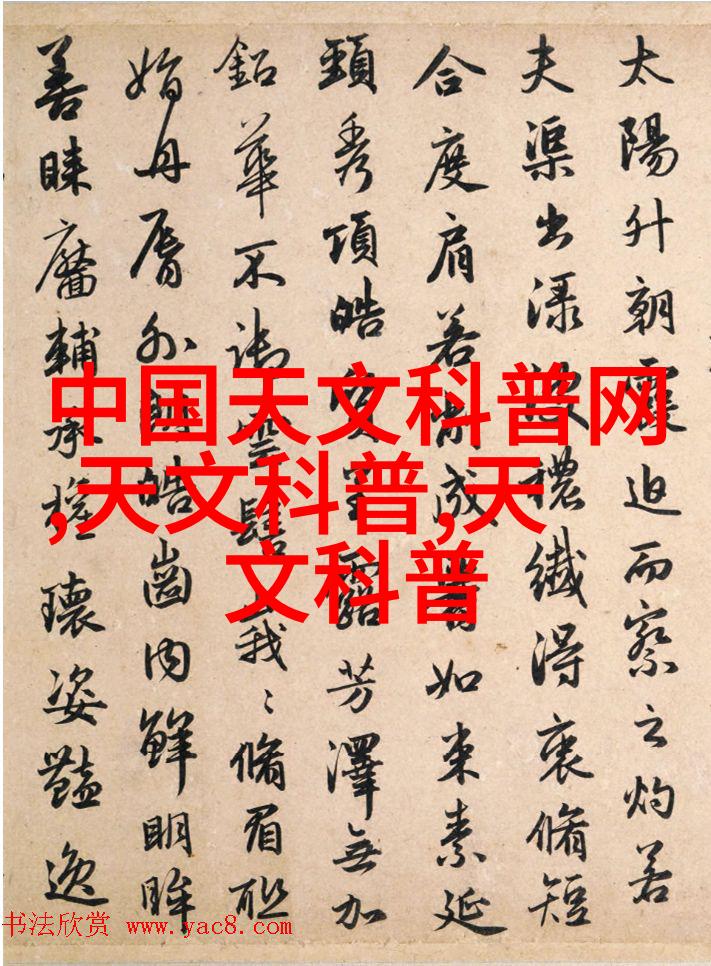 太陽升朝霞迫而察之灼若
夫渠出渌波穠纖得衷脩短
合度肩若削成如束素延
頸秀項皓質呈露芳澤無加
鉛華不御雲髻峩〻脩眉聯
娟丹脣外朗皓齒内鮮明眸
善睞靨輔承權瓌姿豔逸
中国天文科普网
,天文科普,天
文科普
书法欣赏 www.yac8.com